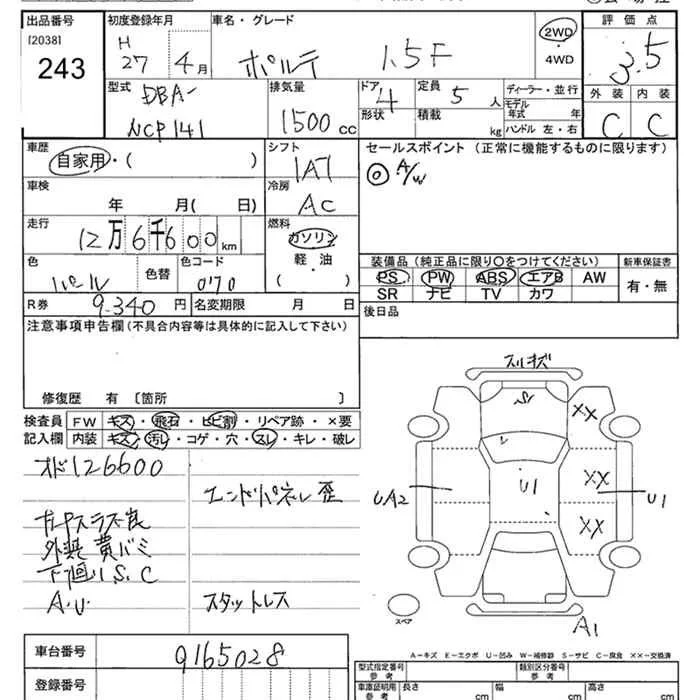 出品番号 初度登録年月 車名・グレード 評価点
[2038] H 2WD
243 27 4月 ポルテ 1.5F ・ 3.5
4WD
型式 排気量 ドア 定員 ディーラー・並行 外装 内装
DBA- 4 5人 モデル年式 年
NCP141 1500cc 形状 積載 kg ハンドル 左・右 C C
車歴 シフト セールスポイント (正常に機能するものに限ります)
自家用・( ) 1AT ◎ A/W
車検 冷房
年 月( 日) AC
走行 燃料
12万6千600km ガソリン
色 色替 色コード 軽・油
パール 070 ( )
装備品(純正品に限り〇をつけてください) 新車保証書
PS PW ABS エアB AW 有・無
SR ナビ TV カワ
R券 9,340円 名変期限 月 日
後日品
注意事項申告欄(不具合内容等は具体的に記入して下さい)
修復歴 有 〔箇所 〕
検査員 FW キズ・飛石・ヒビ割・リペア跡・×要
記入欄 内装 キズ・汚レ・コゲ・穴・スレ・キレ・破レ
オド126600
エンドパネル歪
外装黄バミ
下回りS.C
A.U.
スタットレス
スリキズ
S
XX
XX
XX
U1
UA2
U1
A1
スペア
A-キズ E-エクボ U-凹み W-補修跡 S-サビ C-腐食 ××-交換済
車台番号 9165028
登録番号
型式指定番号 参考 類別区分番号 参考
車庫証明用 参考 長さ cm 幅 cm 高さ cm